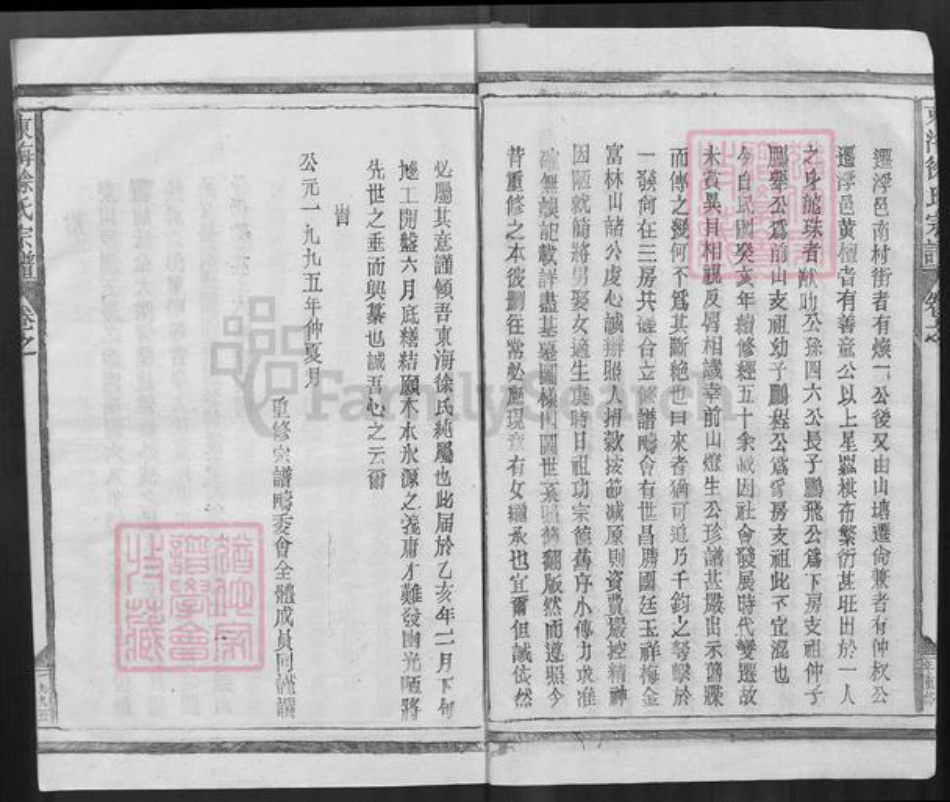 遷浮邑南村街者有煥一公後又由山塘遷尚兼者有仲权公
遷浮邑黄檀者有善童公以上星羅棋布繁衍甚旺出於一人
之身龍珠者猷功公孫四六公長子鵬飛公爲下房支祖仲子
鵬舉公爲前山支祖幼子鵬程公爲房支祖此不宜混也
今自民國癸亥年續修經五十余載因社會發展時代變遷故
未賓異目相視反唇相譏幸前山燈生公珍譜甚嚴出示舊牒
而傳之幾何不爲其斷絶也曰來者猶可追乃千鈞之弩擊於
一發何在三房共議合立修譜疇會有世昌勝國廷玉祥梅金
富林山諸公虔心誠辦照人捐款按節减原則資費嚴控精神
因陋就簡將男娶女適生庚時日祖功宗德舊序小傳力求准
確無誤記載詳盡基墓圖樣四圍世系明翻版然而遵照今
昔重修之本彼劃往常必應現章有女繼承也宜爾但誠依然
必屬其意謹傾吾東海徐氏純屬也此届於乙亥年二月下旬
施工開盤六月底繕結願木本水源之義庸才難發幽光陋將
先世之垂而興纂也誠吾心之云爾
旹
公元一九九五年仲夏月
重修宗譜疇委會全體成員同謹譔
東海徐氏宗譜
卷之
一九九五
東海徐氏宗譜
卷之
FamilySearch